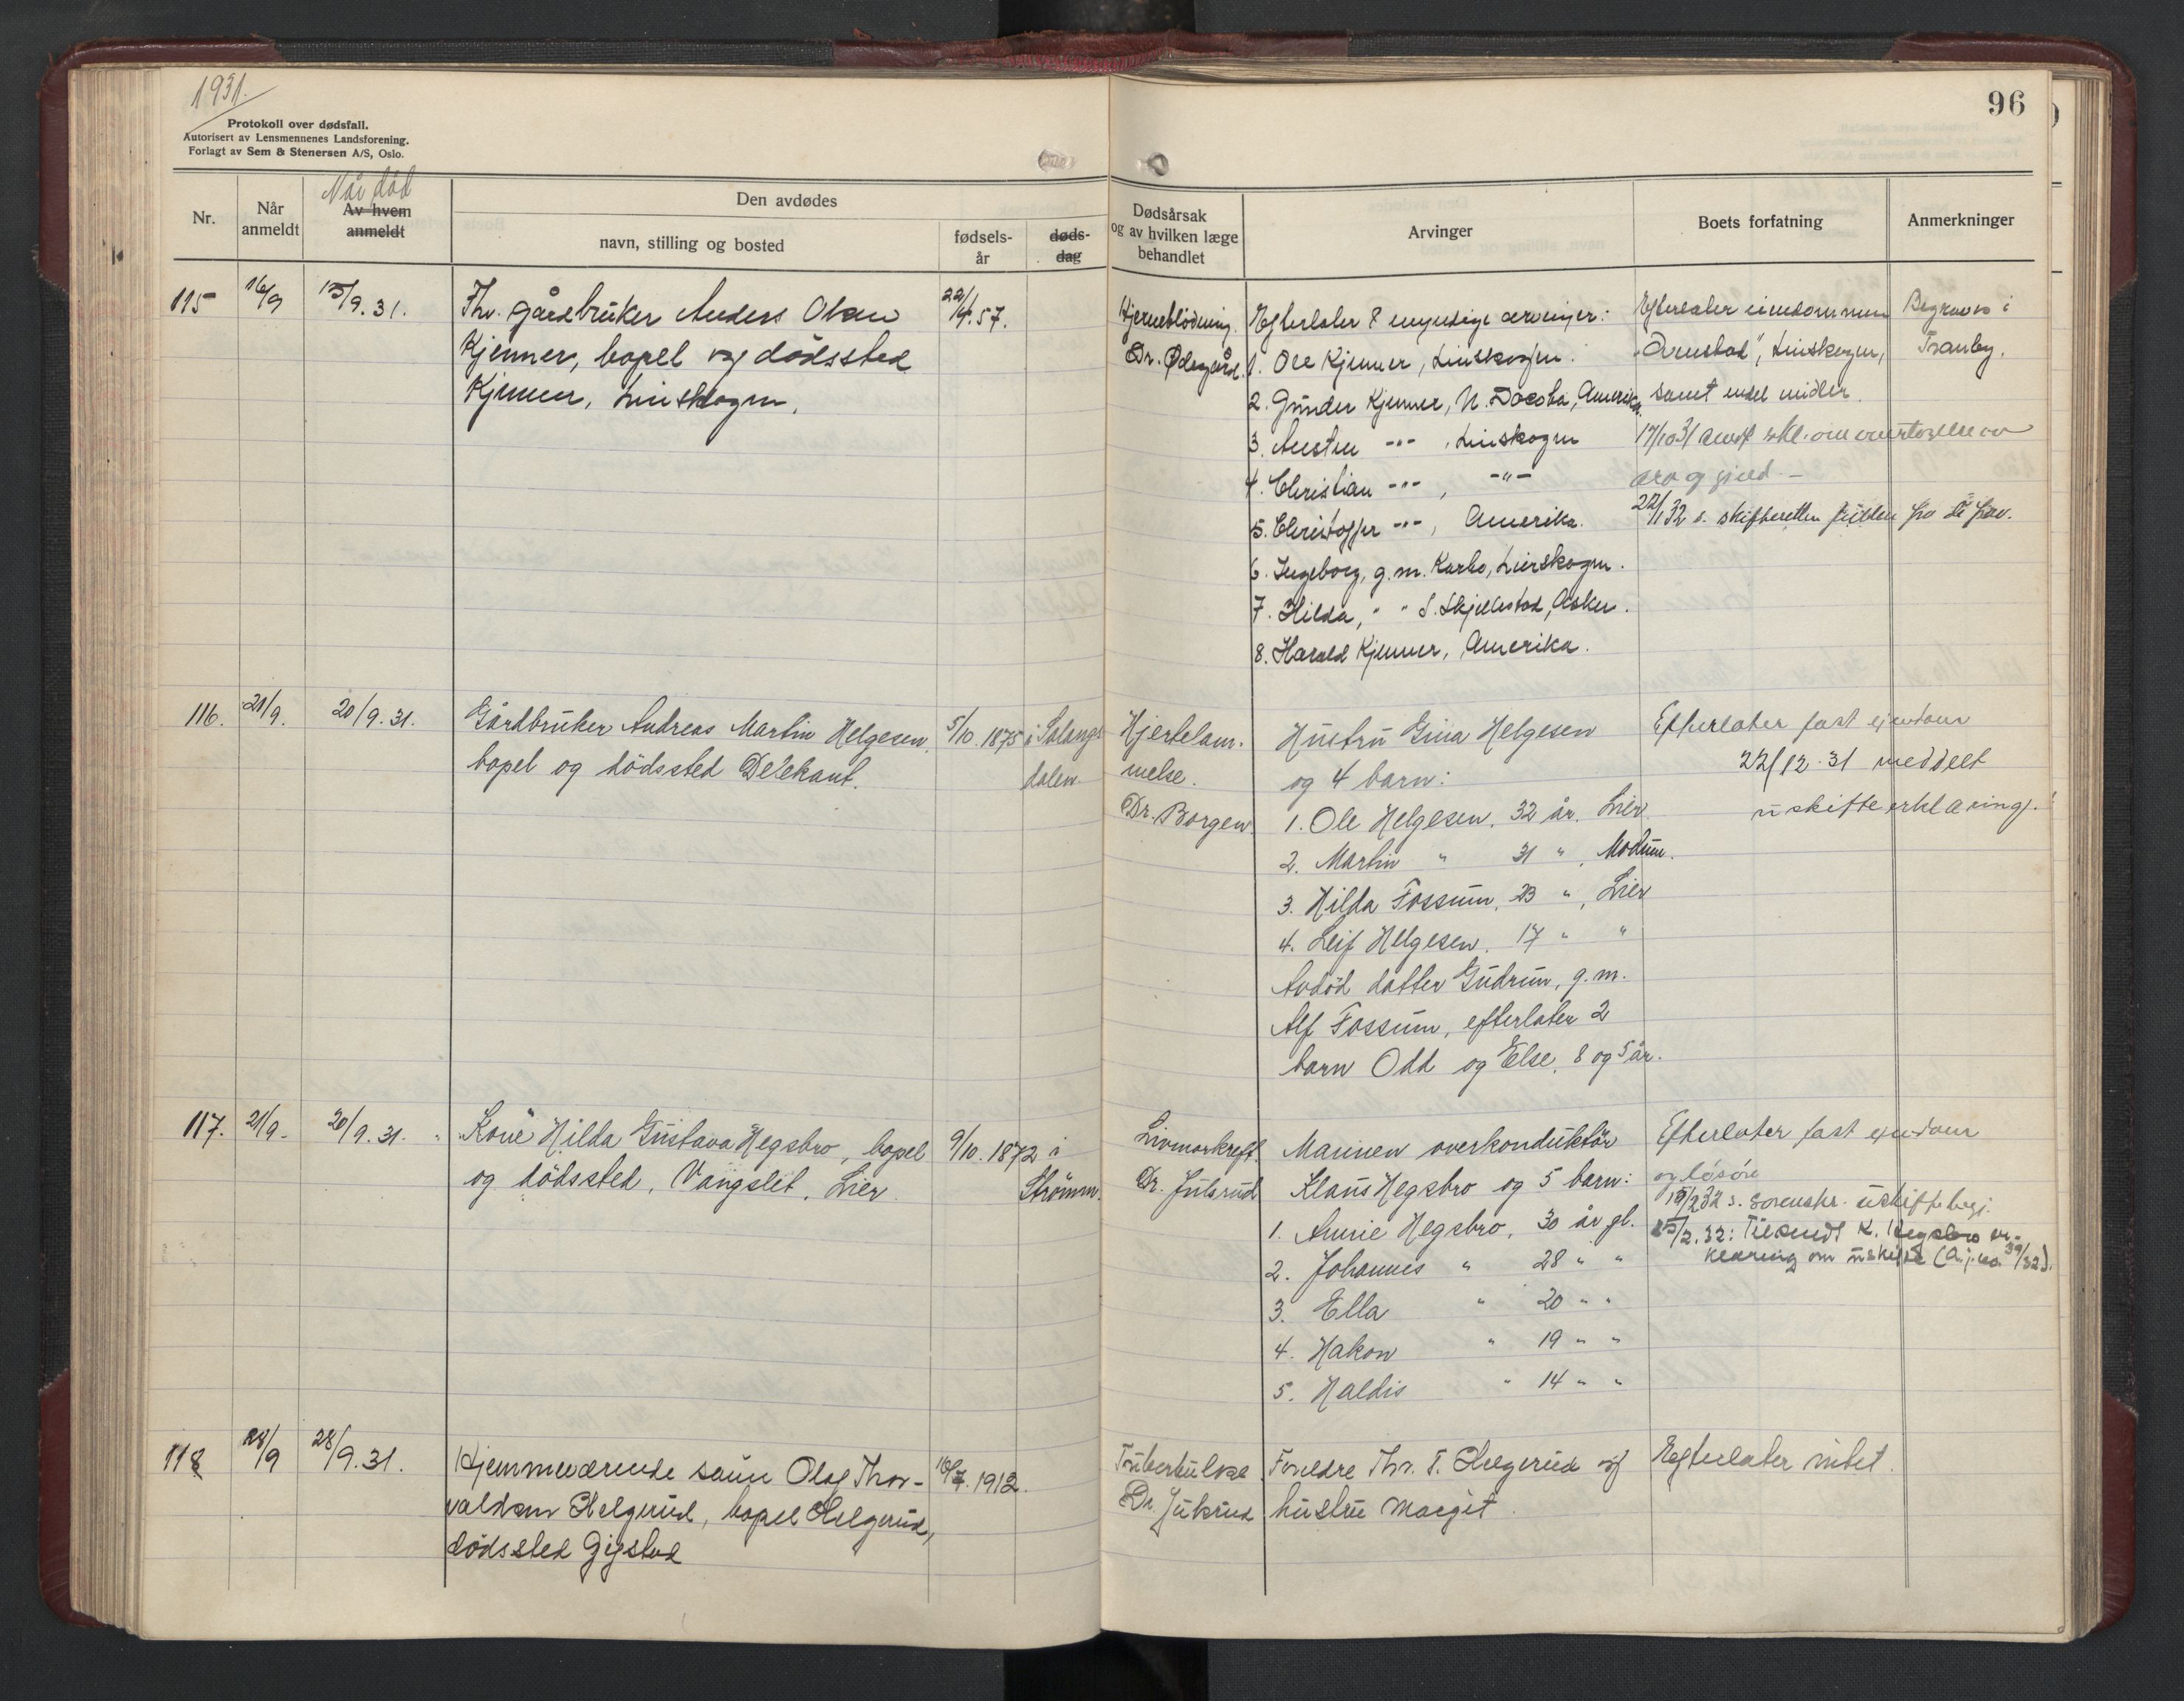 1931.
Protokoll over dødsfall.
Autorisert av Lensmennenes Landsforening.
Forlagt av Sem & Stenersen A/S, Oslo.
96
Nr.
Når anmeldt
Når død
Av hvem anmeldt
Den avdødes
navn, stilling og bosted
fødsels-år
døds-dag
Dødsårsak og av hvilken læge behandlet
Arvinger
Boets forfatning
Anmerkninger
115 16/9 15/9.31.
Fhv. gårdbruker Anders Olsen
Kjenner, bopel og dødssted
Kjenner, Lierskogen.
22/4.57.
Hjerneblödning.
Dr. Ødegård.
Efterlater 8 myndige arvinger:
1. Ole Kjenner, Lierskogen.
2. Gunder Kjenner, N. Dacota, Amerika.
3. Austen -"- , Lierskogen
4. Christian -"- , -"-
5. Christoffer -"-, Amerika.
6. Ingeborg, g.m. Karbo, Lierskogen.
7. Hilda, " " S. Skjellestad, Asker.
8. Harald Kjenner, Amerika.
Efterlater eiendommen
"Arnestad", Lierskogen,
samt endel midler.
17/10 31 avgitt erkl. om overtagelse av
arv og gjeld. -
22/1 32 s. skifteretten
Begraves i
Tranby.
116. 21/9. 20/9.31.
Gårdbruker Andreas Martin Helgesen,
bopel og dödssted Delekant.
5/10.1875 i Salangs
dalen
Hjertelam-
melse.
Dr. Borgen
Hustru Gina Helgesen
og 4 barn:
1. Ole Helgesen, 32 år, Lier
2. Martin " 31 " , Modum.
3. Hilda Fossum, 23 " , Lier
4. Leif Helgesen, 17 " "
Avdöd datter Gudrun, g.m.
Alf Fossum, efterlater 2
barn Odd og Else, 8 og 5 år.
Efterlater fast eiendom
22/12.31 meddelt
uskifteerklæring.
117. 21/9. 20/9.31.
Kone Hilda Gustava Hegsbro, bopel
og dödssted, Vangslet, Lier.
9/10.1872 i
Strömm.
Livmorkreft.
Dr. Julsrud
Mannen overkonduktör
Klaus Hegsbro og 5 barn:
1. Annie Hegsbro, 30 år gl.
2. Johannes " 28 " "
3. Ella " 20 " "
4. Hakon " 19 " "
5. Haldis " 14 " "
Efterlater fast eiendom
og lösöre
15/2 32 s. sorenskr. uskiftebegj.
25/2.32: Tilsendt K. Hegsbro er-
klæring om uskifte (A.j.no. 39/32).
118 28/9 28/9.31.
Hjemmeværende sønn Olaf Thor-
valdsen Helgerud, bopel Helgerud,
dödssted Gijstad
16/7.1912.
Tuberkulose.
Dr. Julsrud
Foreldre Thv. T. Helgerud og
hustru Margit.
Efterlater intet.